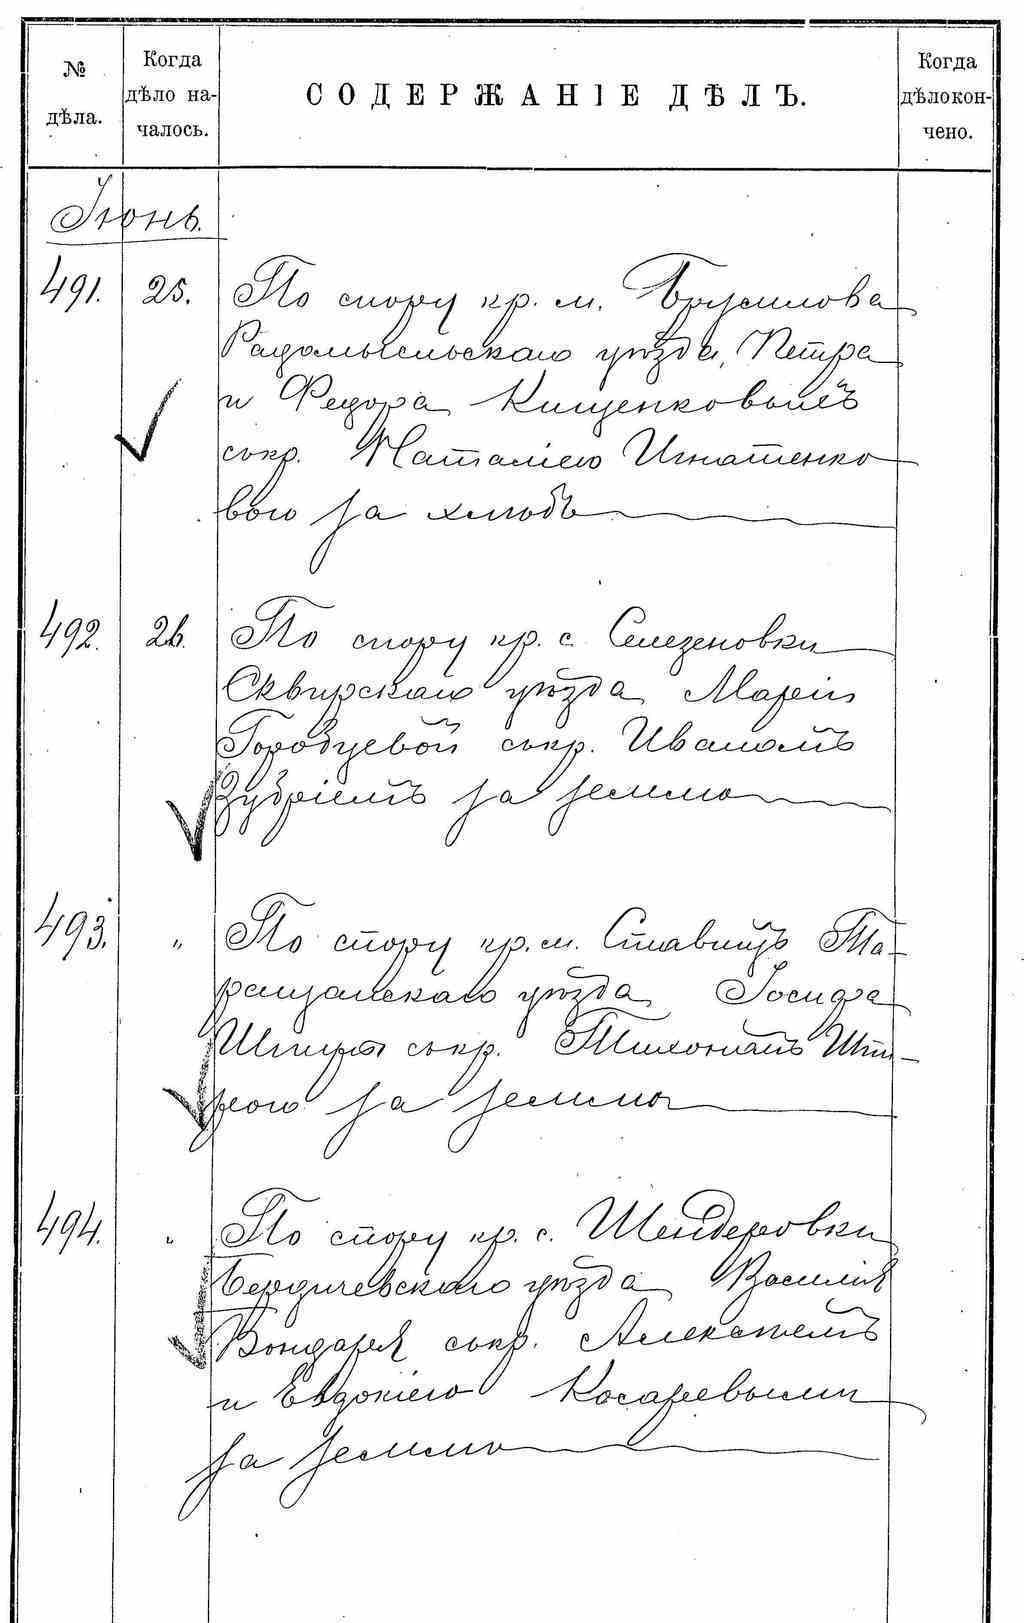 № дѣла.
Когда дѣло на-
чалось.
СОДЕРЖАНІЕ ДѢЛЪ.
Когда дѣло кон-
чено.
Іюнь.
491. 25. По спору кр. м. Брусилова
Радомысльскаго уѣзда, Петра
и Федора Кищенковыхъ
съ кр. Наталіею Игнатенко
вою за хлѣбъ
492. 26. По спору кр. с. Селезеновки
Сквирскаго уѣзда Маріи
Городцевой съ кр. Иваномъ
Зубріемъ за землю
493. " По спору кр. м. Ставищъ Та-
ращанскаго уѣзда Іосифа
съ кр. Тихономъ
за землю
494. " По спору кр. с. Шендеровки
Бердичевскаго уѣзда Василія
Бондаря съ кр. Алексѣемъ
и Евдокіею Косаревыми
за землю